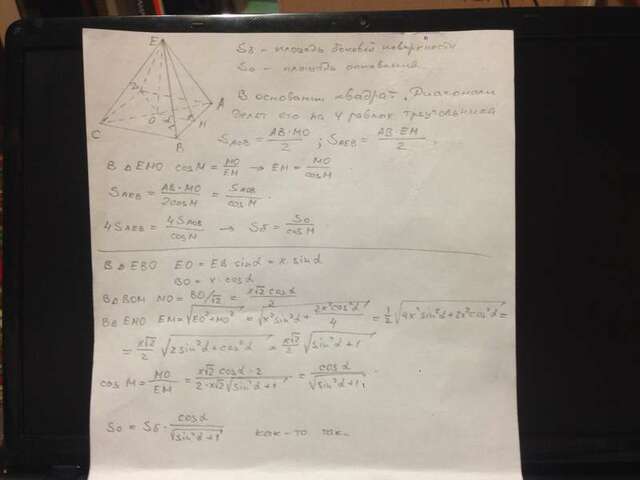 E
Sб – площадь боковой поверхности
Sо – площадь основания
D
A
C
O
α
M
B
В основании квадрат. Диагонали
делят его на 4 равных треугольника
S_AOB = AB·MO/2 ; S_AEB = AB·EM/2.
В △ EMO cosM = MO/EM → EM = MO/cosM
S_AEB = AB·MO/2cosM = S_AOB/cosM
4S_AEB = 4S_AOB/cosM → Sб = Sо/cosM
В △ EBO EO = EB sinα = x·sinα
BO = x·cosα
В △ BOM MO = BO/√2 = x√2 cosα/2
В △ EMO EM = √(EO²+MO²) = √(x²sin²α + 2x²cos²α/4) = 1/2 √(4x²sin²α+2x²cos²α) =
= x√2/2 √(2sin²α+cos²α) = x√2/2 √(sin²α+1)
cosM = MO/EM = x√2 cosα·2/2·x√2√(sin²α+1) = cosα/√(sin²α+1)
Sо = Sб · cosα/√(sin²α+1) как-то так.